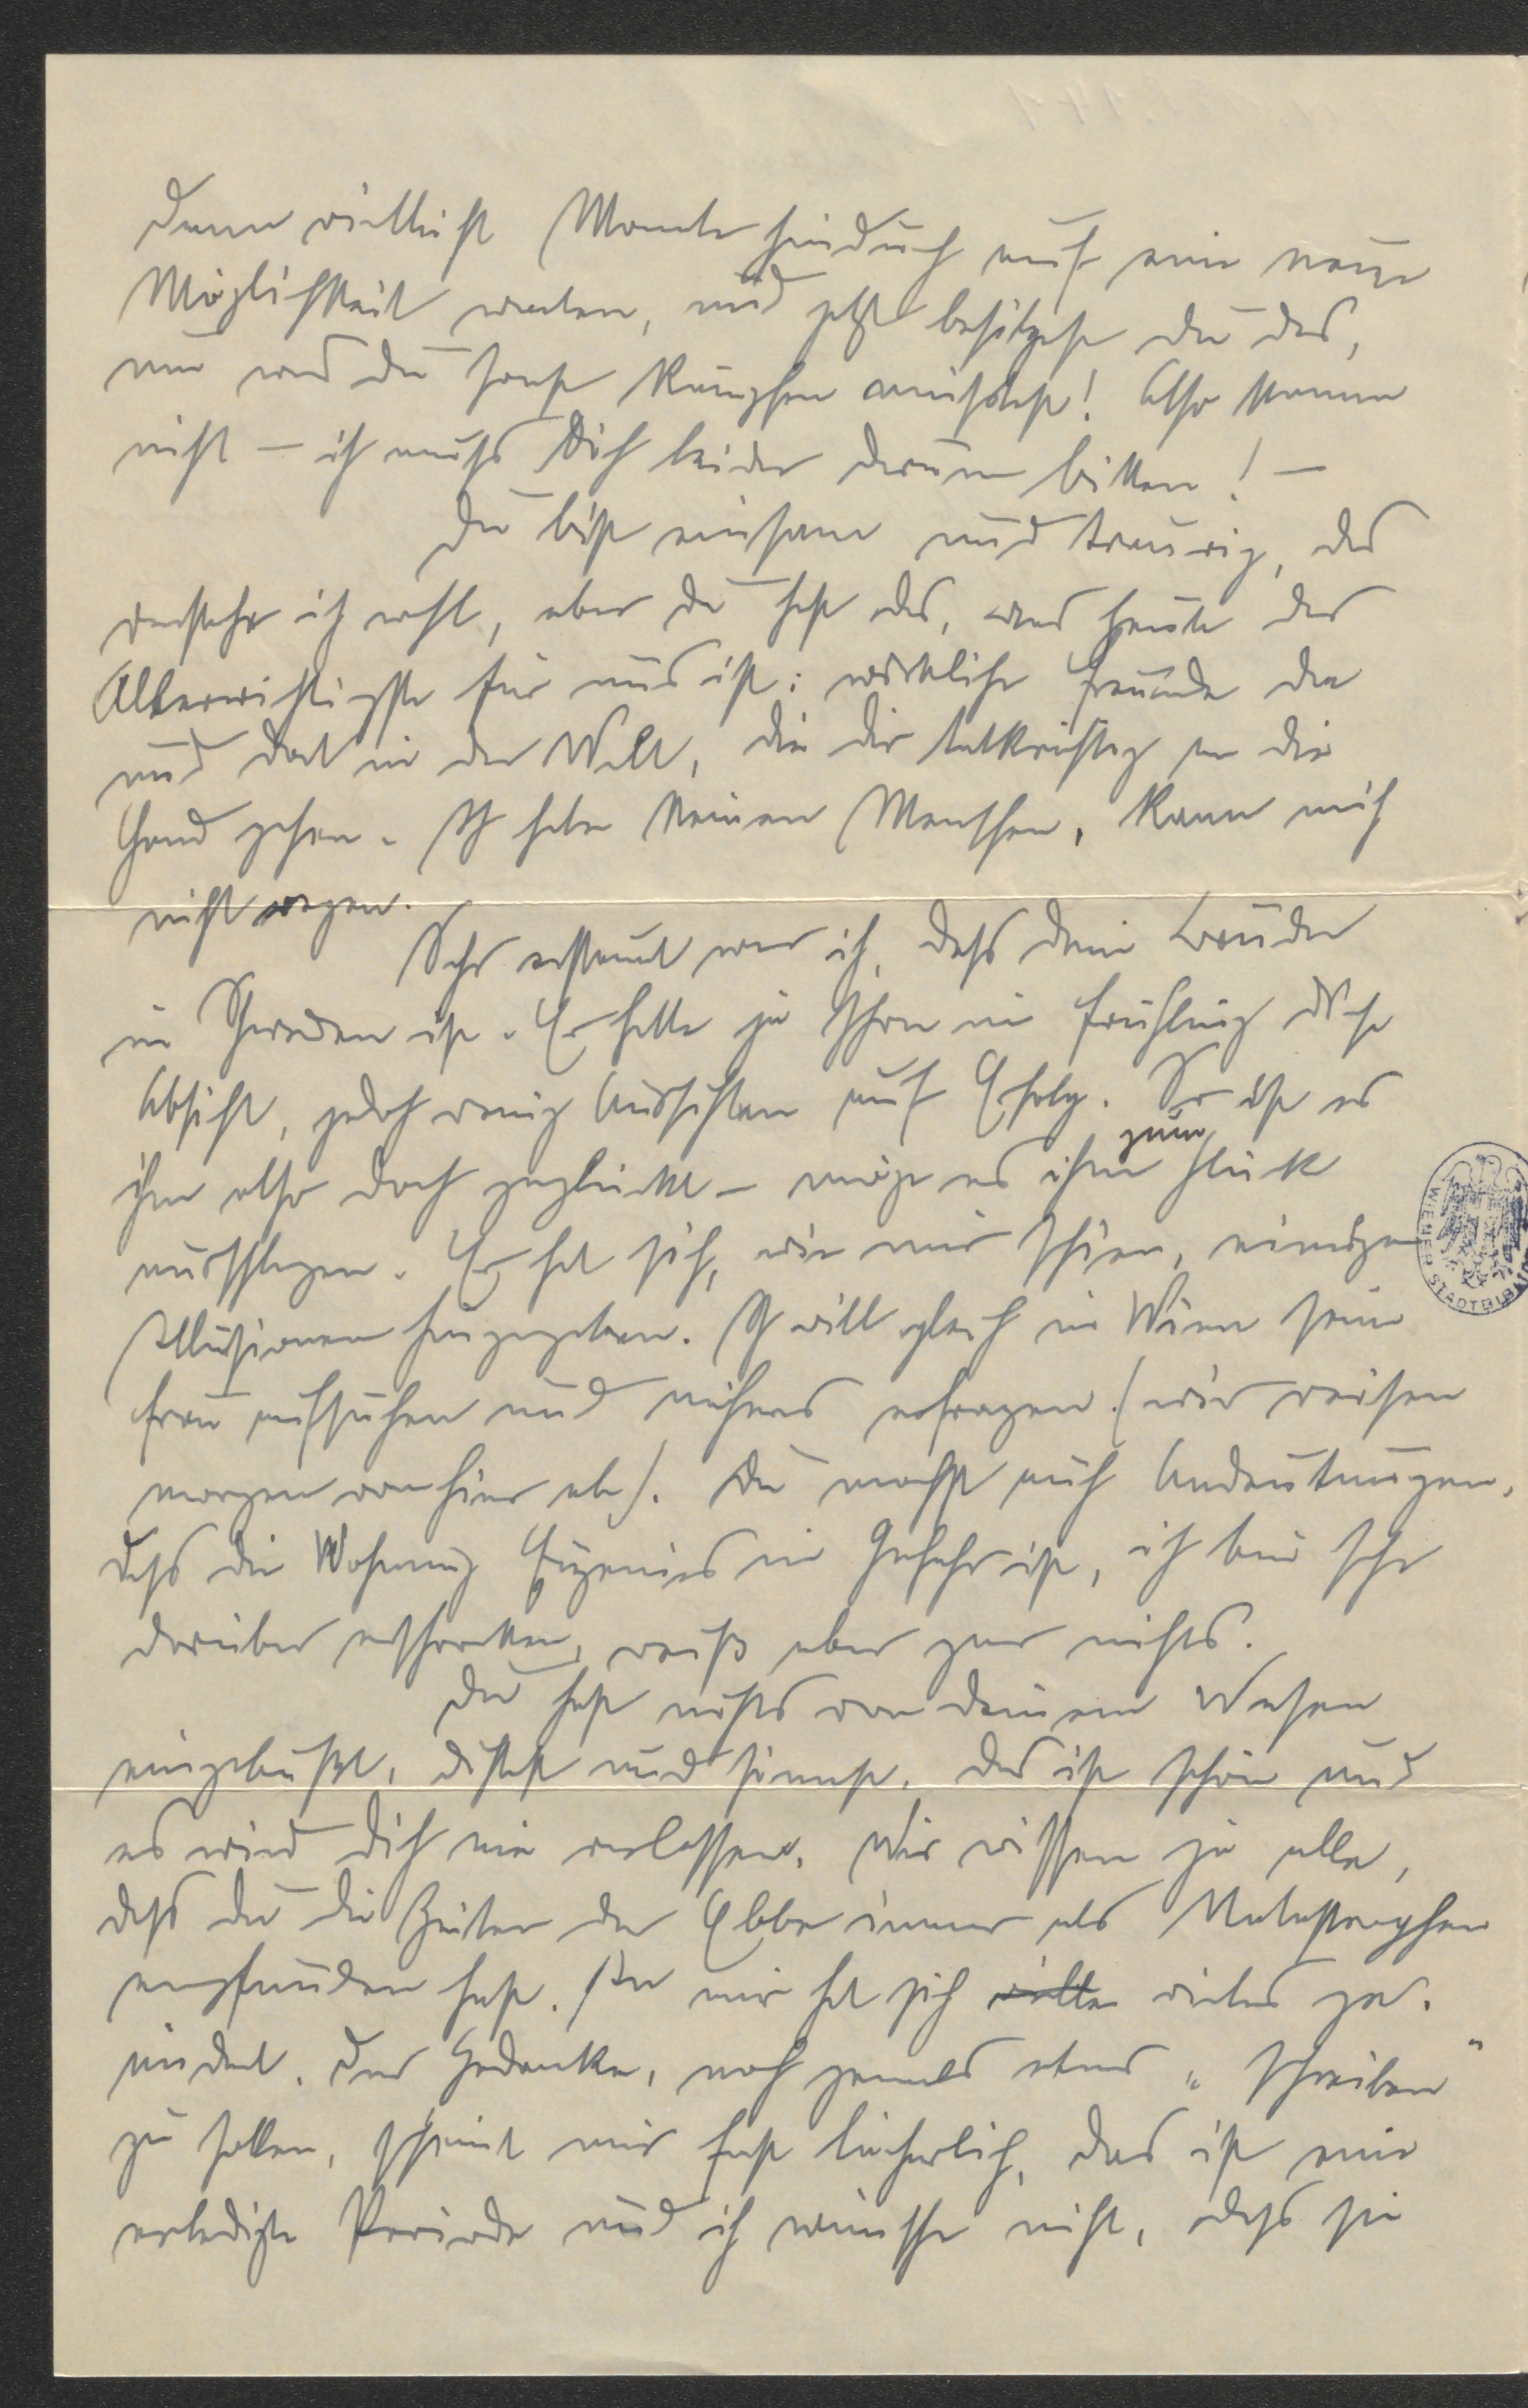 dann vielleicht Monate hindurch auf eine neue
Möglichkeit warten, und jetzt besitzest du das,
um was du sonst kämpfen müsstest! Also komme
nicht – ich muss Dich leider darum bitten! –
Du bist einsam und traurig, das
verstehe ich wohl, aber du hast das, was heute das
Allerwichtigste für uns ist: wirkliche Freunde da
und dort in der Welt, die dir tatkräftig an die
Hand gehen. Ich habe keinen Menschen, kann mich
nicht regen.
Sehr erstaunt war ich, dass dein Bruder
in Schweden ist. Er hatte ja schon im Frühling diese
Absicht, jedoch wenig Aussichten auf Erfolg. So ist es
ihm also doch geglückt – möge es ihm zum Glück
ausschlagen. Er hat sich, wie mir schien, einigen
Illusionen hingegeben. Ich will gleich in Wien seine
Frau aufsuchen und näheres erfragen. (wir reisen
morgen von hier ab). Du machst auch Andeutungen,
dass die Wohnung Eugenies in Gefahr ist, ich bin sehr
darüber erschrocken, weiß aber gar nichts.
Du hast nichts von deinem Wesen
eingebüßt, dichtest und sinnst. Das ist schön und
es wird dich nie verlassen. Wir wissen ja alle,
dass du die Zeiten der Ebbe immer als Katastrophen
empfunden hast. An mir hat sich vieles ge-
ändert. Der Gedanke, noch jemals etwas „schreiben"
zu sollen, scheint mir fast lächerlich, das ist eine
erledigte Periode und ich wünsche nicht, dass sie
WIENER STADTBIB